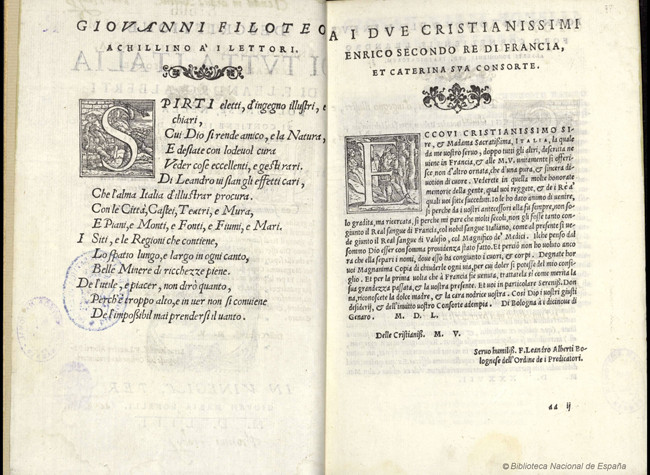 GIOVANNI FILOTEO
ACHILLINO A' I LETTORI.
SPIRTI eletti, d'ingegno illustri, e
chiari,
Cui Dio si rende amico, e la Natura,
E desiate con lodeuol cura
Veder cose eccellenti, e gesti rari.
Di Leandro ui sian gli effetti cari,
Che l'alma Italia d'illustrar procura.
Con le Città, Castei, Teatri, e Mura,
E Piani, e Monti, e Fonti, e Fiumi, e Mari.
I Siti, e le Regioni che contiene,
Lo spatio lungo, e largo in ogni canto,
Belle Minere di ricchezze piene.
De l'utile, e piacer, non dirò quanto,
Perch'è troppo alto, e in uer non si conuiene
De l'impoßibil mai prendersi il uanto.
A I DVE CRISTIANISSIMI
ENRICO SECONDO RE DI FRANCIA,
ET CATERINA SVA CONSORTE.
ECCOVI CRISTIANISSIMO SI-
RE, & Madama Sacratißima, ITALIA, la quale
da me uostro seruo, doppo tutti gli altri, descritta ne
uiene in Francia, & alle M. V. unitamente si offerisce
non d'altro ornata, che d'una pura, & sincera di-
uotion di cuore. Vederete in quella molte honorate
memorie della gente, qual uoi reggete, & de i Rè à
quali uoi sete succeßi. Io le ho dato animo di uenire,
sì perche da i uostri antecessori ella fu sempre, non so-
lo gradita, ma ricercata, sì perche mi pare che molti secoli, non gli fusse tanto con-
giunto il Real sangue di Francia, col nobil sangue Italiano, come al presente si ue-
de giunto il Real sangue di Valesio, col Magnifico de' Medici. Ilche penso dal
sommo Dio esser con somma prouidenza stato fatto. Et perciò non ho uoluto anco
ra che ella separi i nomi, doue esso ha congiunto i cuori, & corpi. Degnate hor
uoi Magnanima Copia di chiuderle ogni uia, per cui doler si potesse del mio consi-
glio. Et per la prima uolta che à Francia sie uenuta, trattatela sì come merita la
sua grandezza passata, & la uostra presente. Et uoi in particolare Sereniß. Don
na, riconoscete la dolce madre, & la cara nodrice uostra. Così Dio i uostri giusti
desiderij, & dell'inuitto uostro Consorte adempia. Di Bologna à i dicinoue di
Genaro. M. D. L.
Delle Cristianiß. M. V.
Seruo humiliß. F. Leandro Alberti Bo-
lognese dell'Ordine de i Predicatori.
dd ij
© Biblioteca Nacional de España